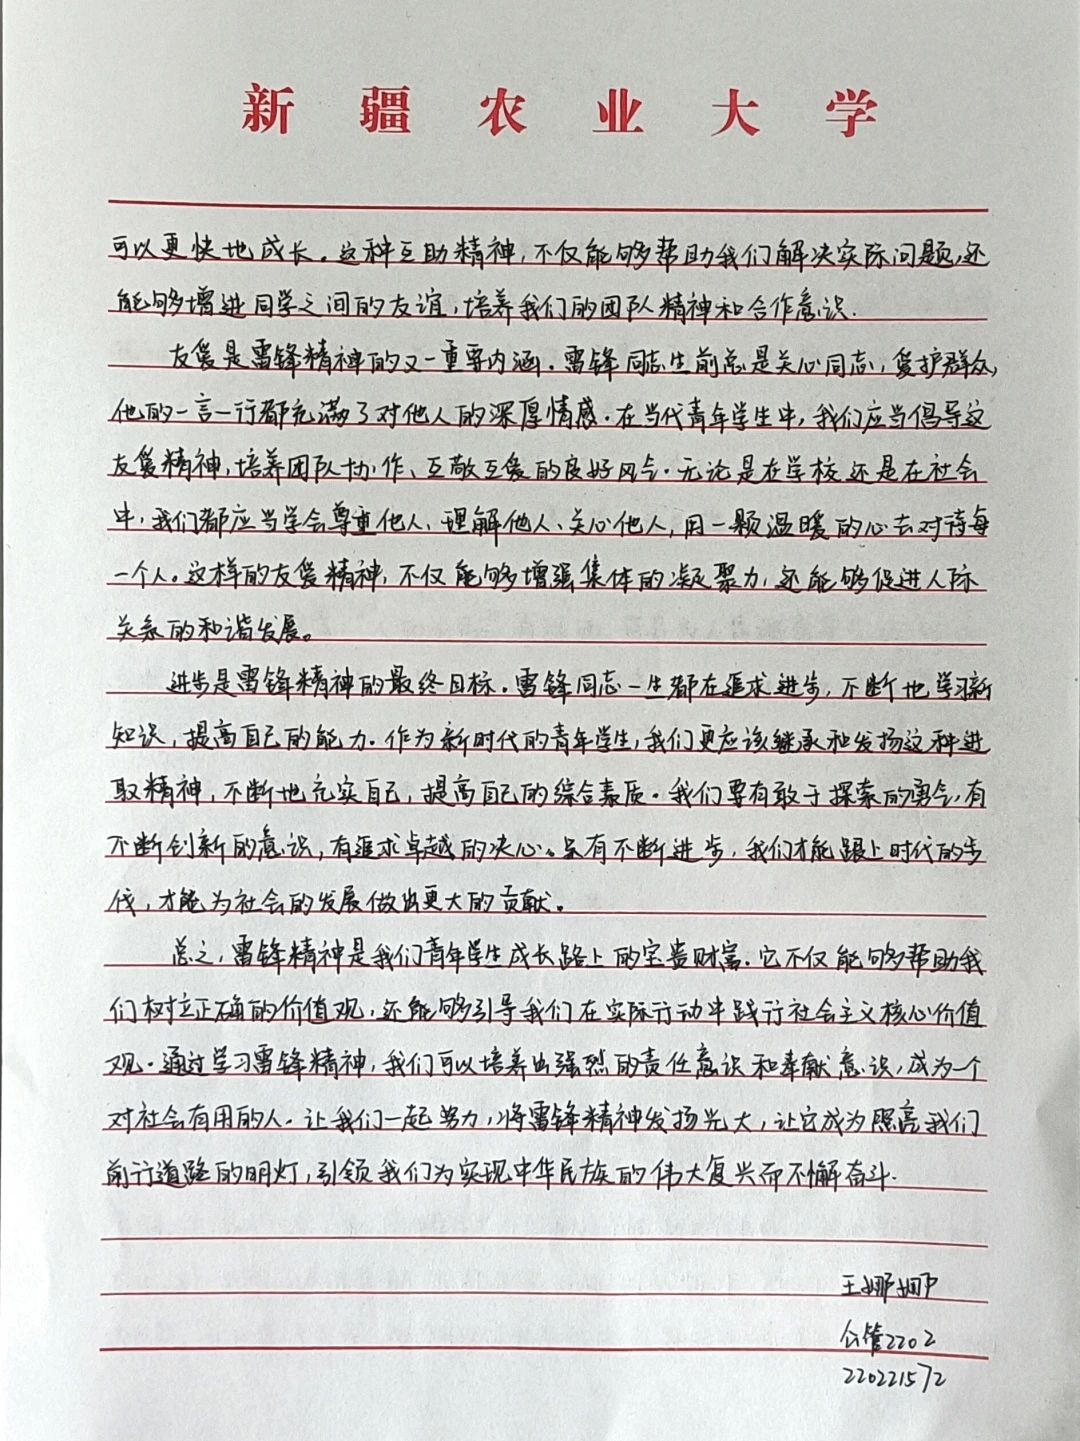 新疆农业大学
可以更快地成长。这种互助精神,不仅能够帮助我们解决实际问题,还
能够增进同学之间的友谊,培养我们的团队精神和合作意识.
友爱是雷锋精神的又一重要内涵.雷锋同志生前总是关心同志,爱护群众,
他的一言一行都充满了对他人的深厚情感.在当代青年学生中,我们应当倡导这
友爱精神,培养团队协作、互敬互爱的良好风气.无论是在学校还是在社会
中,我们都应当学会尊重他人、理解他人、关心他人,用一颗温暖的心去对待每
一个人。这样的友爱精神,不仅能够增强集体的凝聚力,还能够促进人际
关系的和谐发展。
进步是雷锋精神的最终目标.雷锋同志一生都在追求进步,不断地学习新
知识,提高自己的能力.作为新时代的青年学生,我们更应该继承和发扬这种进
取精神,不断地充实自己,提高自己的综合素质.我们要有敢于探索的勇气,有
不断创新的意识,有追求卓越的决心。只有不断进步,我们才能跟上时代的步
伐,才能为社会的发展做出更大的贡献。
总之,雷锋精神是我们青年学生成长路上的宝贵财富.它不仅能够帮助我
们树立正确的价值观,还能够引导我们在实际行动中践行社会主义核心价值
观.通过学习雷锋精神,我们可以培养出强烈的责任意识和奉献意识,成为一个
对社会有用的人.让我们一起努力,将雷锋精神发扬光大,让它成为照亮我们
前行道路的明灯,引领我们为实现中华民族的伟大复兴而不懈奋斗.
王娜娜
公管2202
220221572